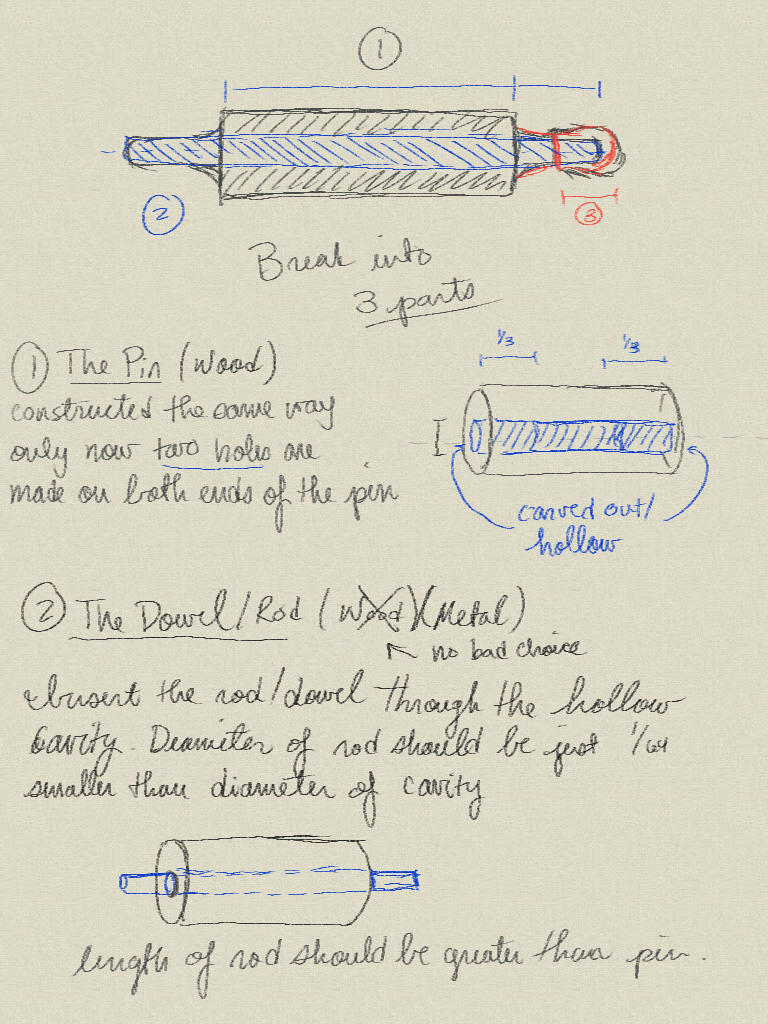 1
2
3
Break into
3 parts
1 The Pin (Wood)
constructed the same way
only now two holes are
made on both ends of the pin
1/3 1/3
carved out/
hollow
2 The Dowel/Rod (Wood)(Metal)
↖ no bad choice
Insert the rod/dowel through the hollow
Cavity. Diameter of rod should be just 1/64
smaller than diameter of cavity
length of rod should be greater than pin.